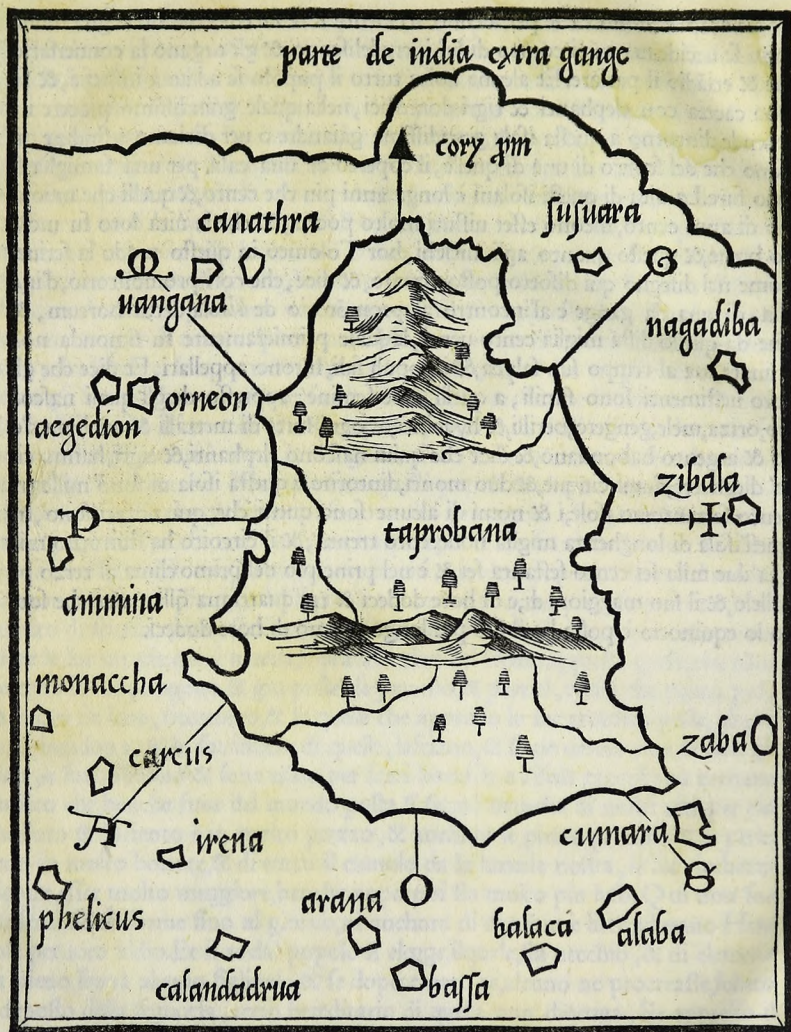 parte de india extra gange
cory pm
canathra
susuara
uangana
M
G
nagadiba
orneon
aegedion
zibala
P
taprobana
ammina
monaccha
zaba
carcus
A
irena
cumara
S
phelicus
O
arana
balaca
alaba
calandadrua
bassa